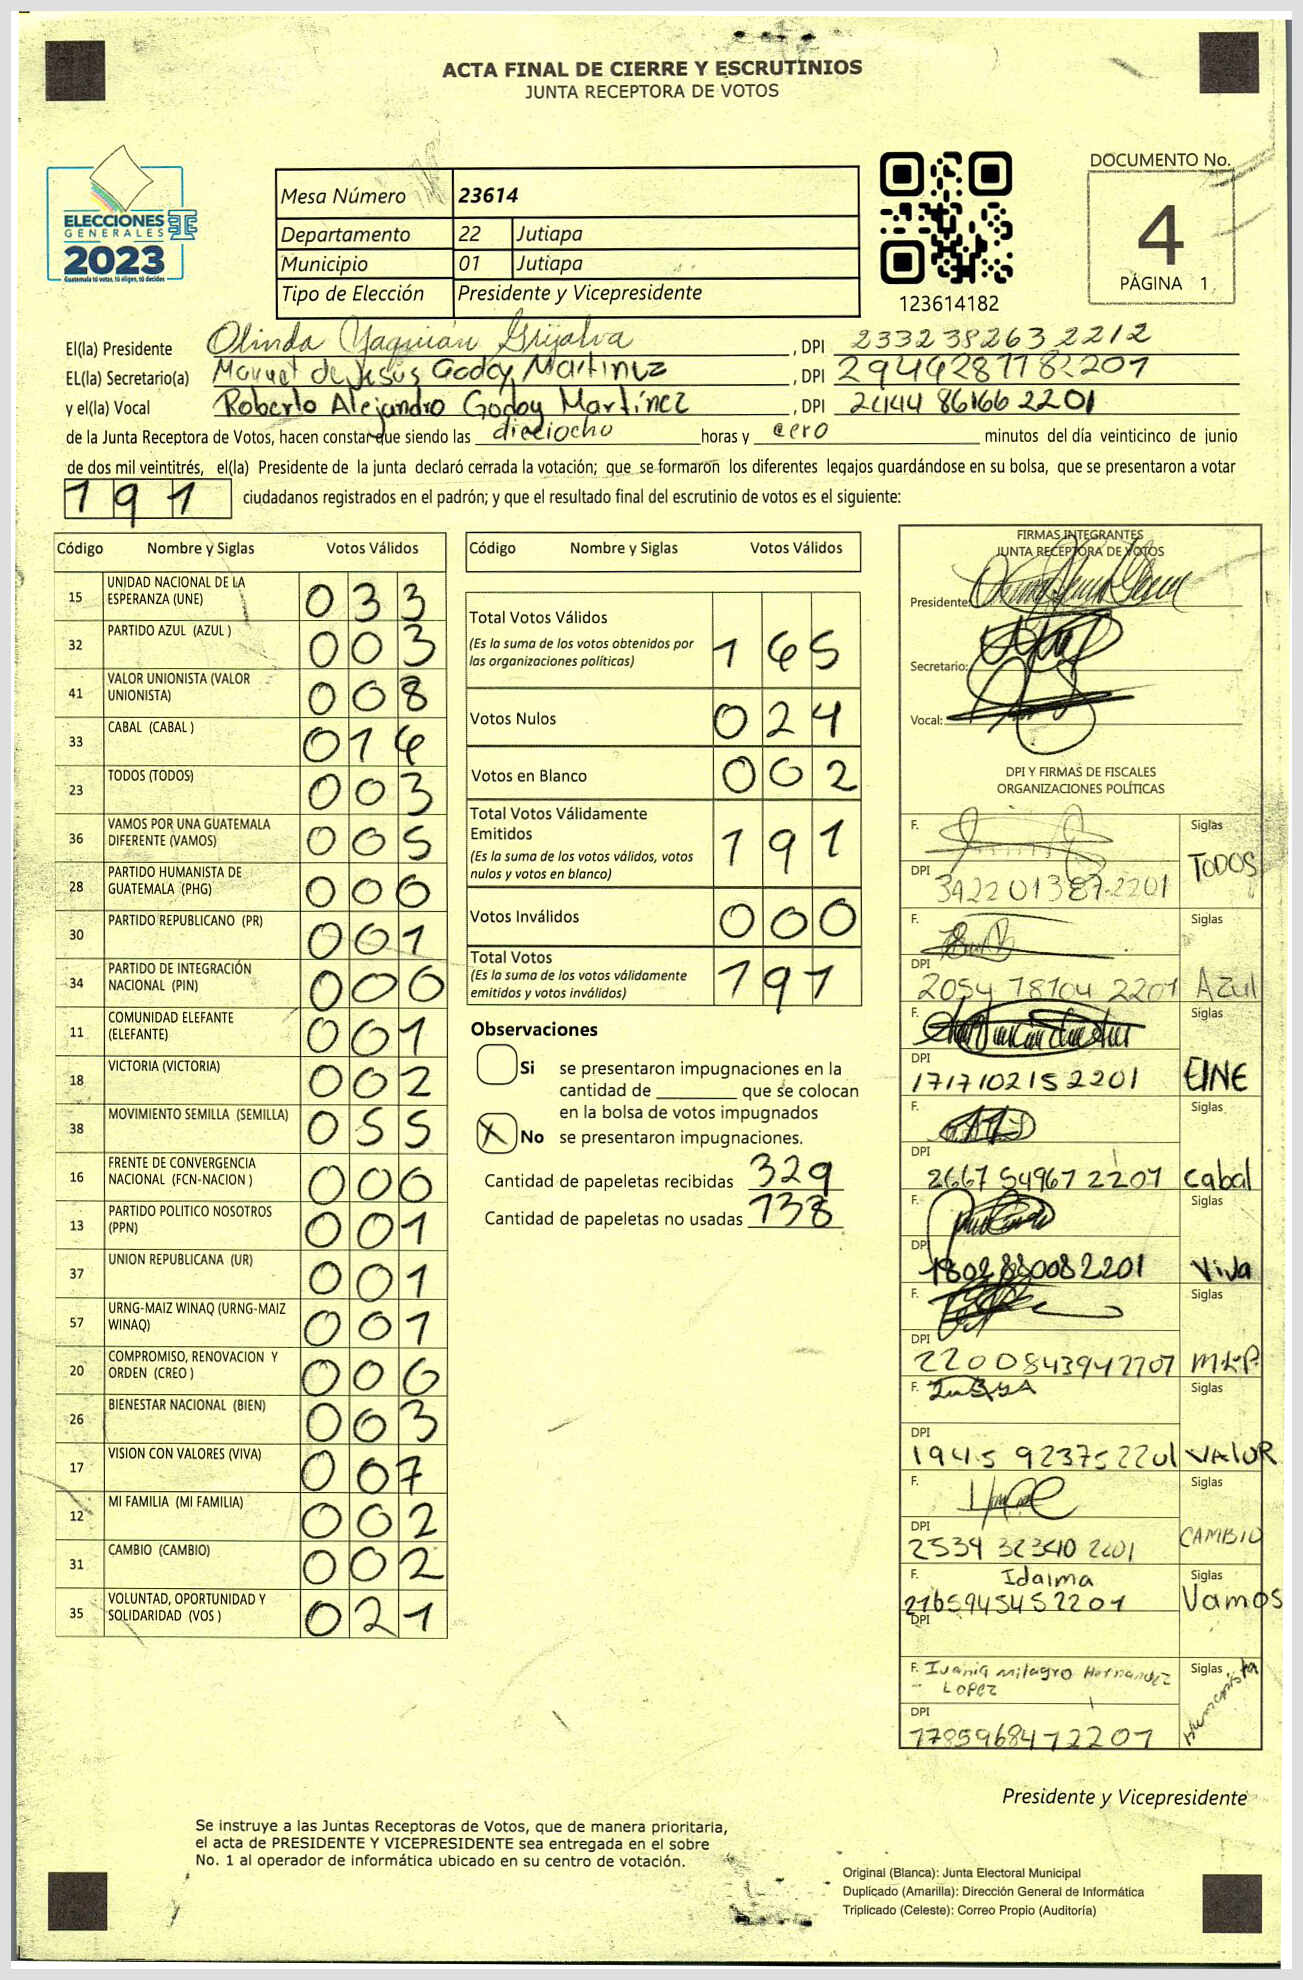 ACTA FINAL DE CIERRE Y ESCRUTINIOS
JUNTA RECEPTORA DE VOTOS
ELECCIONES
GENERALES
2023
Guatemala tú votas, tú eliges, tú decides
Mesa Número 23614
Departamento 22 Jutiapa
Municipio 01 Jutiapa
Tipo de Elección Presidente y Vicepresidente
123614182
DOCUMENTO No.
4
PÁGINA 1
El(la) Presidente Olinda Yaquián Grijalva, DPI 233238263 2212
EL(la) Secretario(a) Manuel de Jesús Godoy Martinez, DPI
y el(la) Vocal Roberto Alejandro Godoy Martínez, DPI 2444 86166 2201
de la Junta Receptora de Votos, hacen constar que siendo las dieciocho horas y cero minutos del día veinticinco de junio
de dos mil veintitrés, el(la) Presidente de la junta declaró cerrada la votación; que se formaron los diferentes legajos guardándose en su bolsa, que se presentaron a votar
191 ciudadanos registrados en el padrón; y que el resultado final del escrutinio de votos es el siguiente:
Código Nombre y Siglas Votos Válidos
15 UNIDAD NACIONAL DE LA ESPERANZA (UNE) 033
32 PARTIDO AZUL (AZUL ) 003
41 VALOR UNIONISTA (VALOR UNIONISTA) 008
33 CABAL (CABAL ) 016
23 TODOS (TODOS) 003
36 VAMOS POR UNA GUATEMALA DIFERENTE (VAMOS) 005
28 PARTIDO HUMANISTA DE GUATEMALA (PHG) 000
30 PARTIDO REPUBLICANO (PR) 001
34 PARTIDO DE INTEGRACIÓN NACIONAL (PIN) 000
11 COMUNIDAD ELEFANTE (ELEFANTE) 001
18 VICTORIA (VICTORIA) 002
38 MOVIMIENTO SEMILLA (SEMILLA) 055
16 FRENTE DE CONVERGENCIA NACIONAL (FCN-NACION ) 000
13 PARTIDO POLITICO NOSOTROS (PPN) 001
37 UNION REPUBLICANA (UR) 001
57 URNG-MAIZ WINAQ (URNG-MAIZ WINAQ) 001
20 COMPROMISO, RENOVACION Y ORDEN (CREO ) 000
26 BIENESTAR NACIONAL (BIEN) 003
17 VISION CON VALORES (VIVA) 007
12 MI FAMILIA (MI FAMILIA) 002
31 CAMBIO (CAMBIO) 002
35 VOLUNTAD, OPORTUNIDAD Y SOLIDARIDAD (VOS ) 021
Código Nombre y Siglas Votos Válidos
Total Votos Válidos 165
(Es la suma de los votos obtenidos por
las organizaciones políticas)
Votos Nulos 024
Votos en Blanco 002
Total Votos Válidamente
Emitidos 191
(Es la suma de los votos válidos, votos
nulos y votos en blanco)
Votos Inválidos 000
Total Votos 191
(Es la suma de los votos válidamente
emitidos y votos inválidos)
Observaciones
Si se presentaron impugnaciones en la
cantidad de ________ que se colocan
en la bolsa de votos impugnados
X No se presentaron impugnaciones.
Cantidad de papeletas recibidas 329
Cantidad de papeletas no usadas 138
FIRMAS INTEGRANTES
JUNTA RECEPTORA DE VOTOS
Presidente:
Secretario:
Vocal:
DPI Y FIRMAS DE FISCALES
ORGANIZACIONES POLÍTICAS
F. Siglas
TODOS
DPI 3422 01387-2201
F. Siglas
DPI 2054 78104 2201 Azul
F. Siglas
DPI 1717102152201
F. Siglas
DPI 2667 54967 2201 Cabal
F. Siglas
DPI 1802880082201 Viva
F. Siglas
DPI 2200843942201 M.L.P.
F. Siglas
DPI 1945 923752201 VALOR
F. Siglas
DPI 2534 32340 2201 CAMBIO
F. Idalma Siglas
2165945452201 Vamos
DPI
F. Ivania milagro Hernandez Siglas
Lopez
Humanista
DPI 1785968472201
Presidente y Vicepresidente
Se instruye a las Juntas Receptoras de Votos, que de manera prioritaria,
el acta de PRESIDENTE Y VICEPRESIDENTE sea entregada en el sobre
No. 1 al operador de informática ubicado en su centro de votación.
Original (Blanca): Junta Electoral Municipal
Duplicado (Amarilla): Dirección General de Informática
Triplicado (Celeste): Correo Propio (Auditoría)